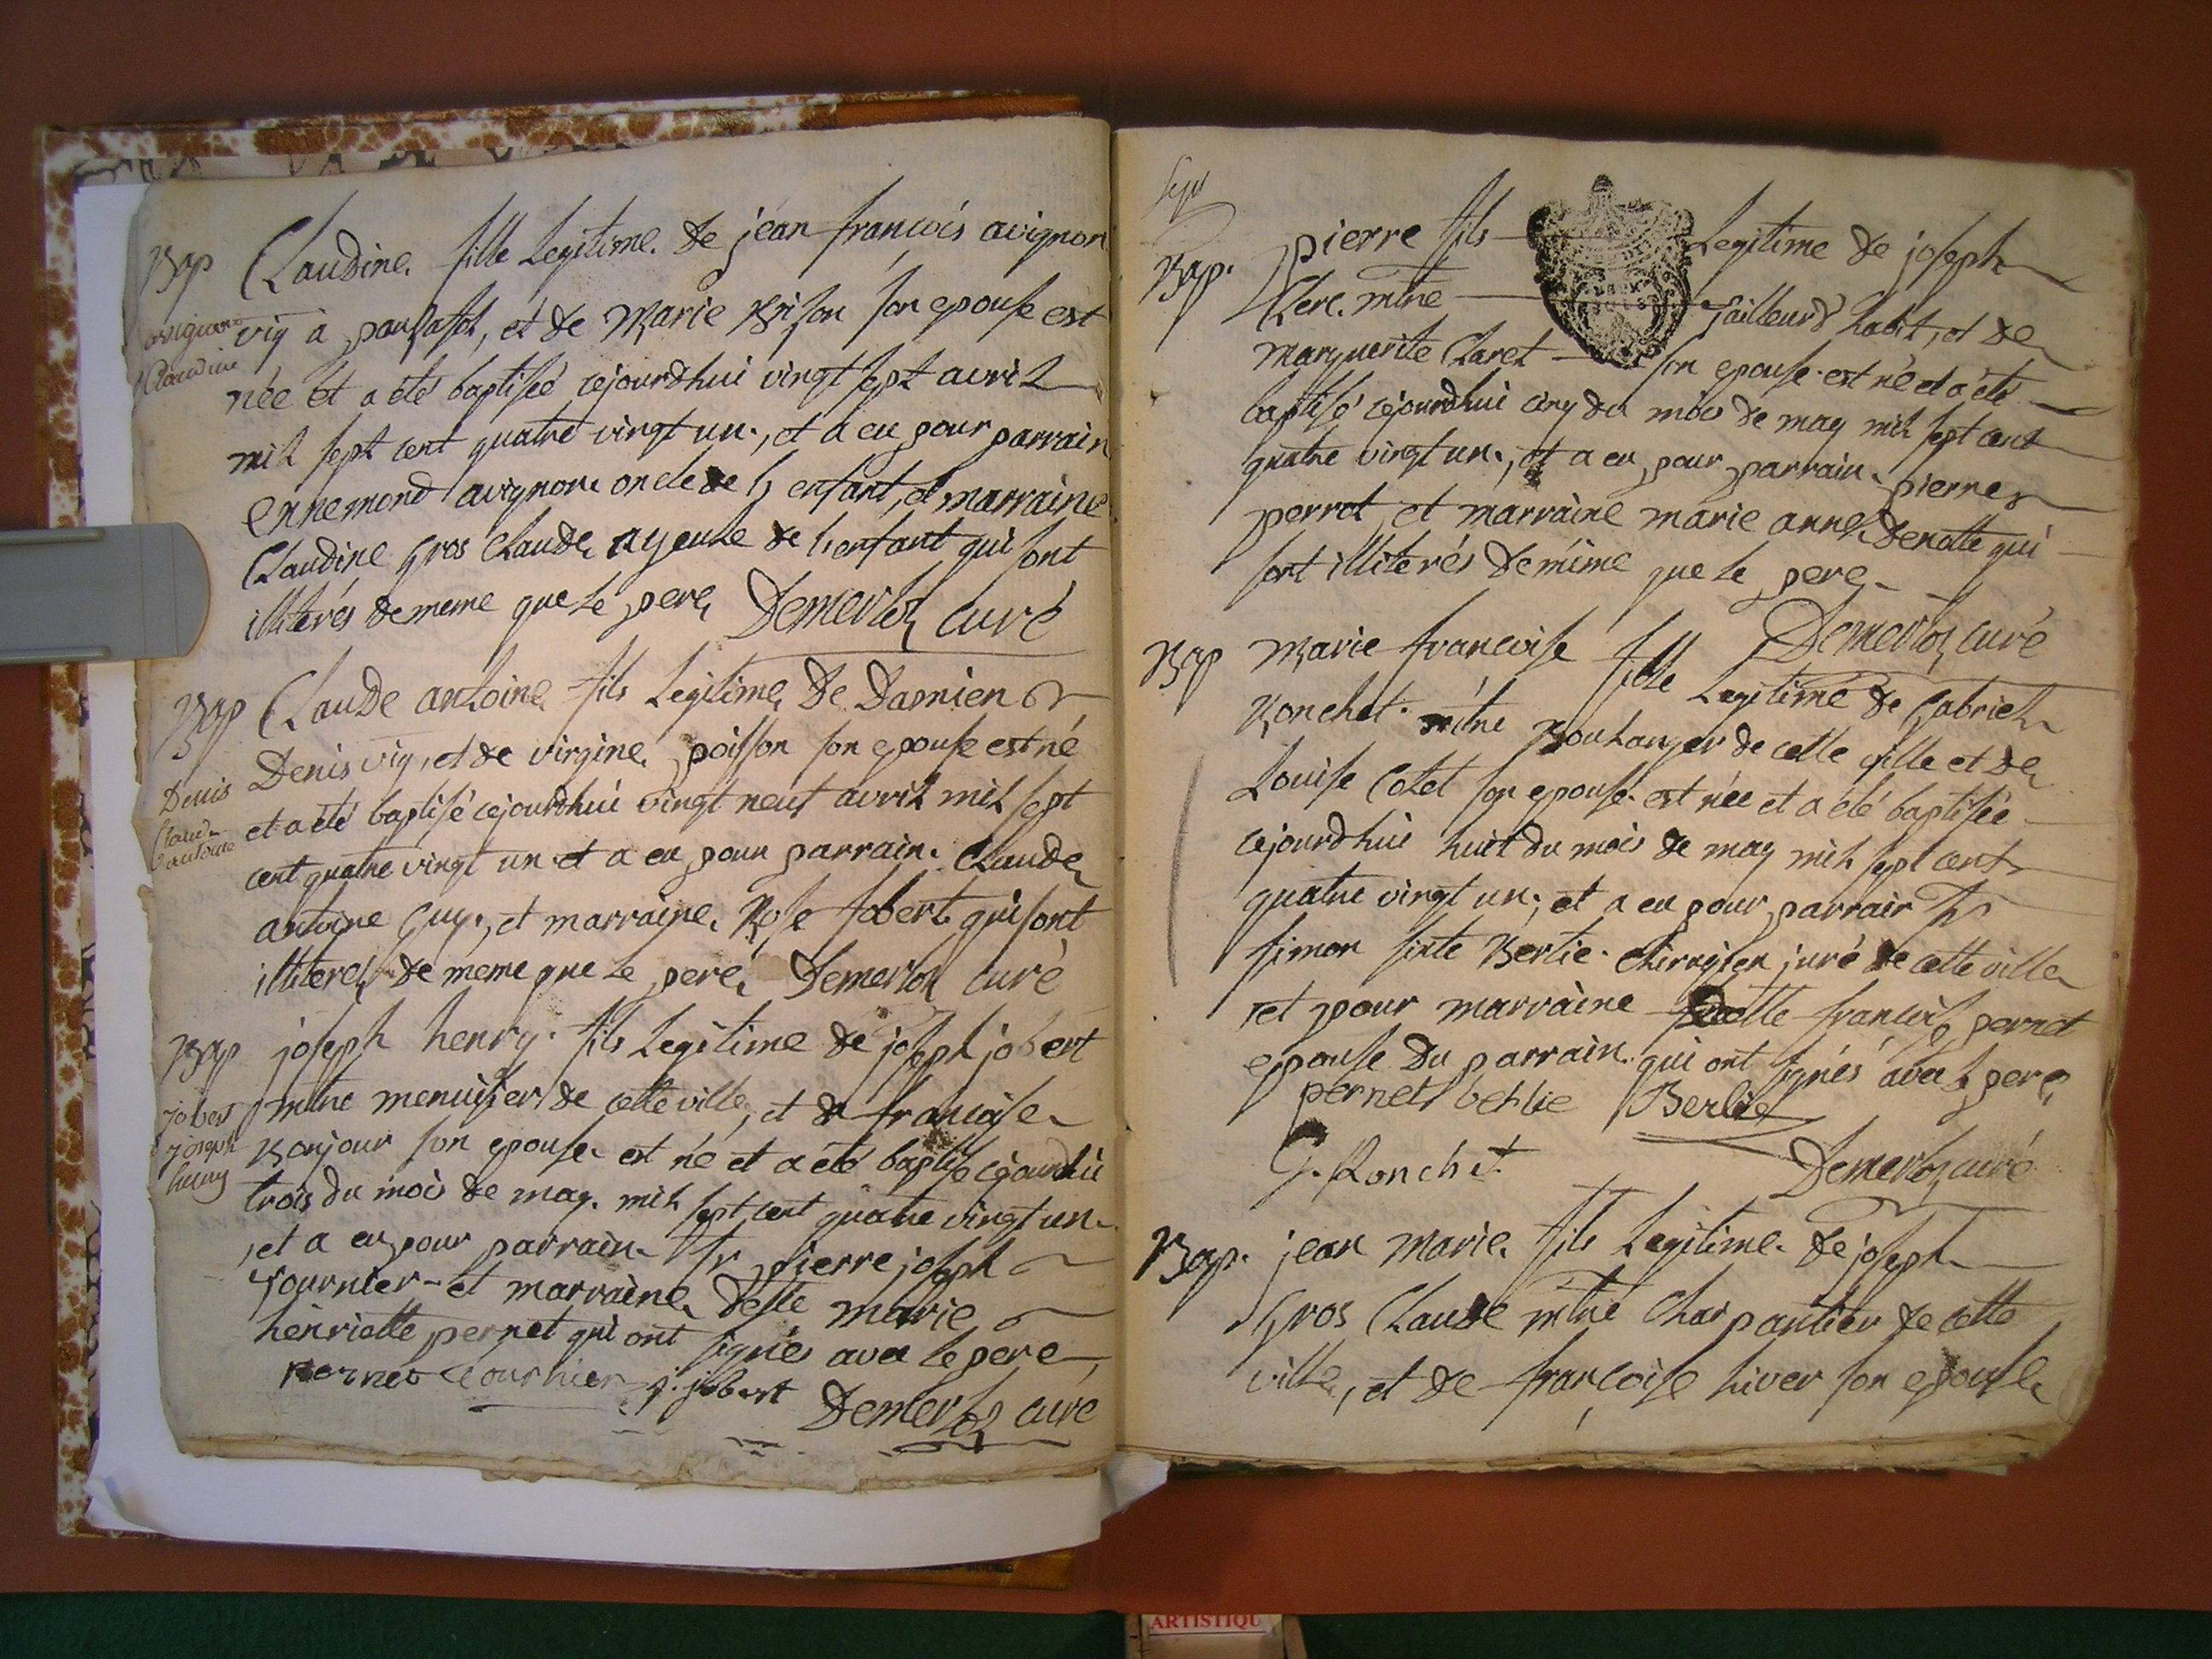 Bap Claudine fille Legitime de jean françois avignon
avignon
Claudine
vig à pansasst, et de Marie Brison son epouse est
née et a été baptisée cejourdhui vingt sept avril
mil sept cent quatre vingt un, et a eu pour parrain
ennemond avignon oncle de l'enfant, et marraine
Claudine gros Claude ayeule de l'enfant qui sont
illiterés de meme que le pere Demerloz curé
Bap Claude antoine fils Legitime De Damien
Denis vig, et de virgine poisson son epouse est né
Denis
Claude
antoine
et a été baptisé cejourdhui vingt neuf avril mil sept
cent quatre vingt un et a eu pour parrain Claude
antoine guy, et marraine Rose Jobert qui sont
illiterés de meme que le pere Demerloz curé
Bap joseph henry fils Legitime de joseph jobert
jobert
joseph
henry
mtre menuisier de cette ville, et de francoise
Bonjour son epouse est né et a été baptisé cejourdhui
trois du mois de may mil sept cent quatre vingt un
et a eu pour parrain Sr pierre joseph
fournier et marraine delle marie
henriette pernet qui ont signés avec le pere
pernet fournier j. jobert
Demerloz curé
Sept
Bap. pierre fils Legitime de joseph
Clerc mtre Tailleur d'habit, et de
Marguerite Claret son epouse est né et a été
baptisé cejourdhui cinq du mois de may mil sept cent
quatre vingt un, et a eu pour parrain pierre
perrot et marraine marie anne Denotte qui
sont illiterés de même que le pere
Demerloz curé
Bap Marie francoise fille Legitime de Gabriel
Ronchet mtre Boulanger de cette ville et de
Louise Cotet son epouse est née et a été baptisée
cejourdhui huit du mois de may mil sept cent
quatre vingt un, et a eu pour parrain Sr
simon sixte Berlie chirugien juré de cette ville
et pour marraine delle francoise pernet
epouse du parrain qui ont signés avec le pere
pernet berlie Berlie
G. Ronchet
Demerloz curé
Bap. jean marie fils Legitime de joseph
gros Claude mtre Charpantier de cette
ville, et de françoise hiver son epouse
ARTISTIQU